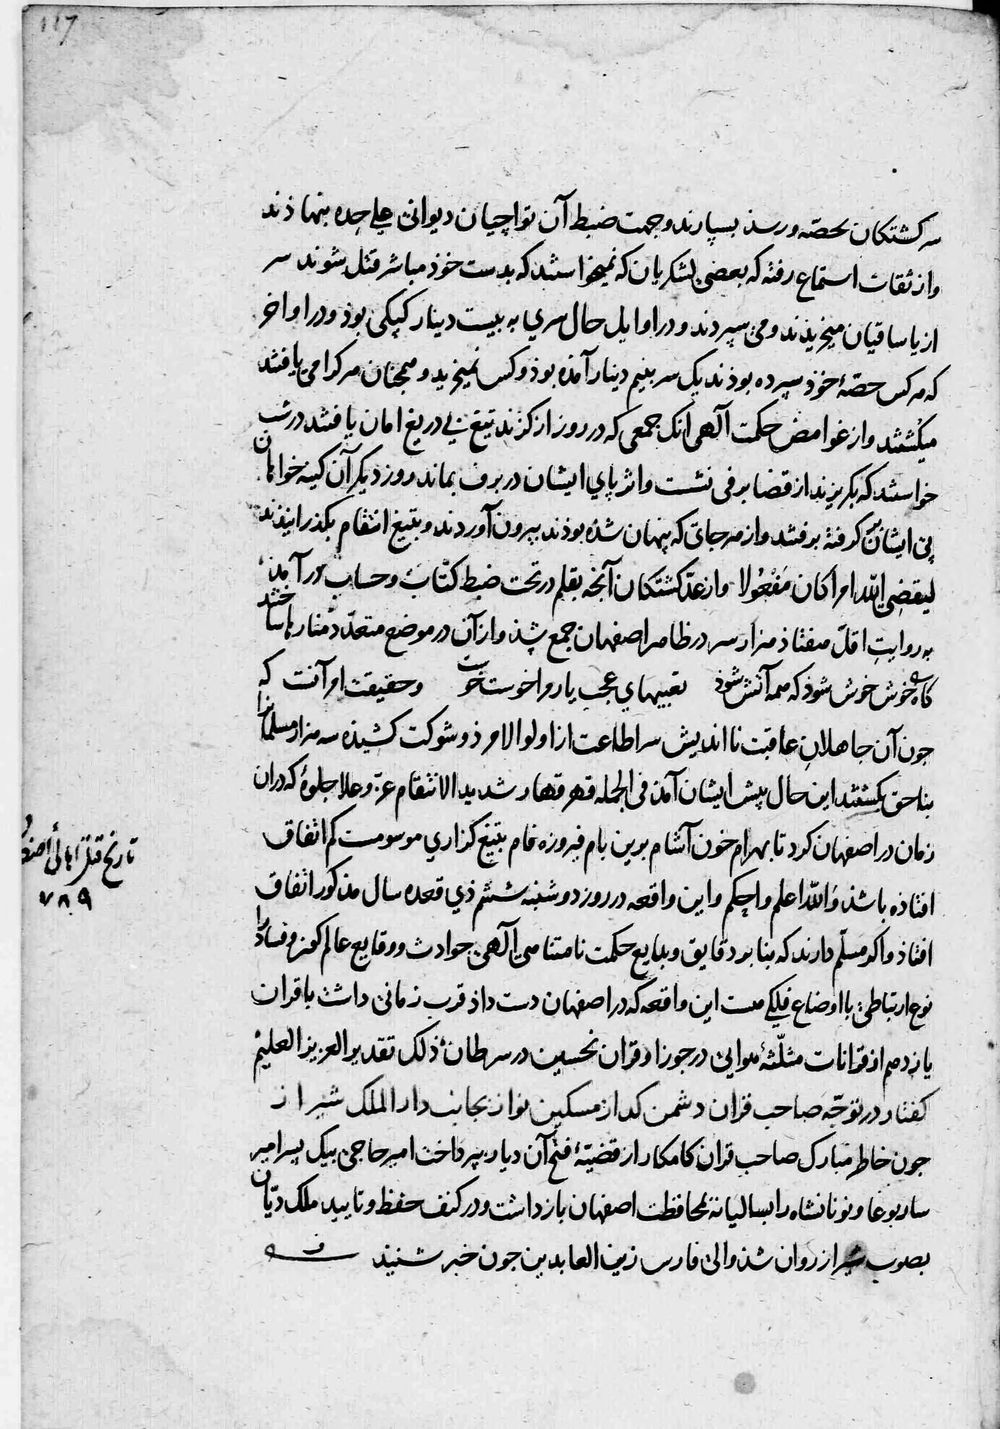 117
سر کشتکان بحصّه و رسذ بسپارند و جهت ضبط آن تواچیان دیوانی علی حده بنهاذند
و از ثقات استماع رفته که بعضی لشکریان که نمیخواستند که بدست خوذ مباشر قتل شوند سر
از یاساقیان میخریذند و می سپردند و در اوایل حال سری به بیست دینار کپکی بوذ و در اواخر
که هرکس حصّهٔ خوذ سپرده بوذند یک سر بنیم دینار آمذه بوذ و کس نمیخرید و همچنان هر کرا می یافتند
میکشتند و از غوامض حکمت آلهی انک جمعی که در روز از کزند تیغ بی دریغ امان یافتند در شب
خواستند که بکریزند از قضا برفی نشست و اثر پای ایشان در برف بماند روز دیکر آن کینه خواهان
پی ایشان کرفته برفتند و از هر جای که پنهان شذه بوذند بیرون آوردند و بتیغ انتقام بکذرانیذند
لیقضی الله امرا کان مفعولا و از عدّ کشتکان آنچه بقلم در تحت ضبط کتّاب و حساب در آمذ
به روایت اقلّ هفتاذ هزار سر در ظاهر اصفهان جمع شذ و از آن در موضع متعدّد منارها ساختند
کاهی خوش خوش شوذ که همه آتش شوذ تعبیهای عجب یار مرا خوست خوست و حقیقت امر آنست که
جون آن جاهلان عاقبت نااندیش سر اطاعت از اولو الامر ذو شوکت کشیذه سه هزار مسلمانرا
بناحق بکشتند این حال پیش ایشان آمذ فی الجمله قهر قهار شدید الانتقام عزّ و علا جلوهٔ که در ان
زمان در اصفهان کرد تا بهرام خون آشام برین بام فیروزه فام بتیغ کزاری موسومست کم اتفاق
افتاذه باشذ و الله اعلم و احکم و این واقعه در روز دوشنبه ششم ذی قعده سال مذکور اتفاق
افتاذ و اکر مسلّم دارند که بنا بر دقایق و بدایع حکمت نامتناهی آلهی حوادث و وقایع عالم کون و فساد را
نوع ارتباطی با اوضاع فلکی هست این واقعه که در اصفهان دست داذ قرب زمانی داشت با قران
یازدهم از قرانات مثلّثهٔ هوایی در جوزا و قران نحسین در سرطان ذلک تقدیر العزیز العلیم
کفتار در توجّه صاحب قران دشمن کداز مسکین نواز بجانب دار الملک شیراز
جون خاطر مبارک صاحب قران کامکار از قضیّهٔ فتح آن دیار بپرداخت امیر حاجی بیک پسر امیر
ساربوغا و نونانشاه را بسالیانه بمحافظت اصفهان بازداشت و در کنف حفظ و تایید ملک دیّان
بصوب شیراز روان شذ والی فارس زین العابدین جون خبر شنیذ
تاریخ قتل اهالی
۷۸۹